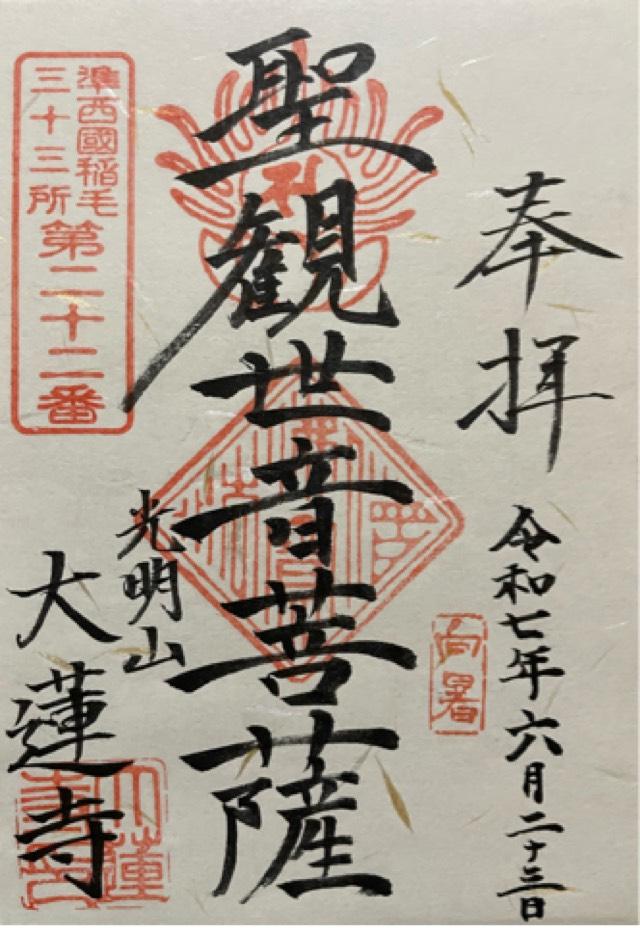 奉拝
令和七年六月二十三日
向暑
聖観世音菩薩
光明山
大蓮寺
準西國稲毛
三十三所第二十二番